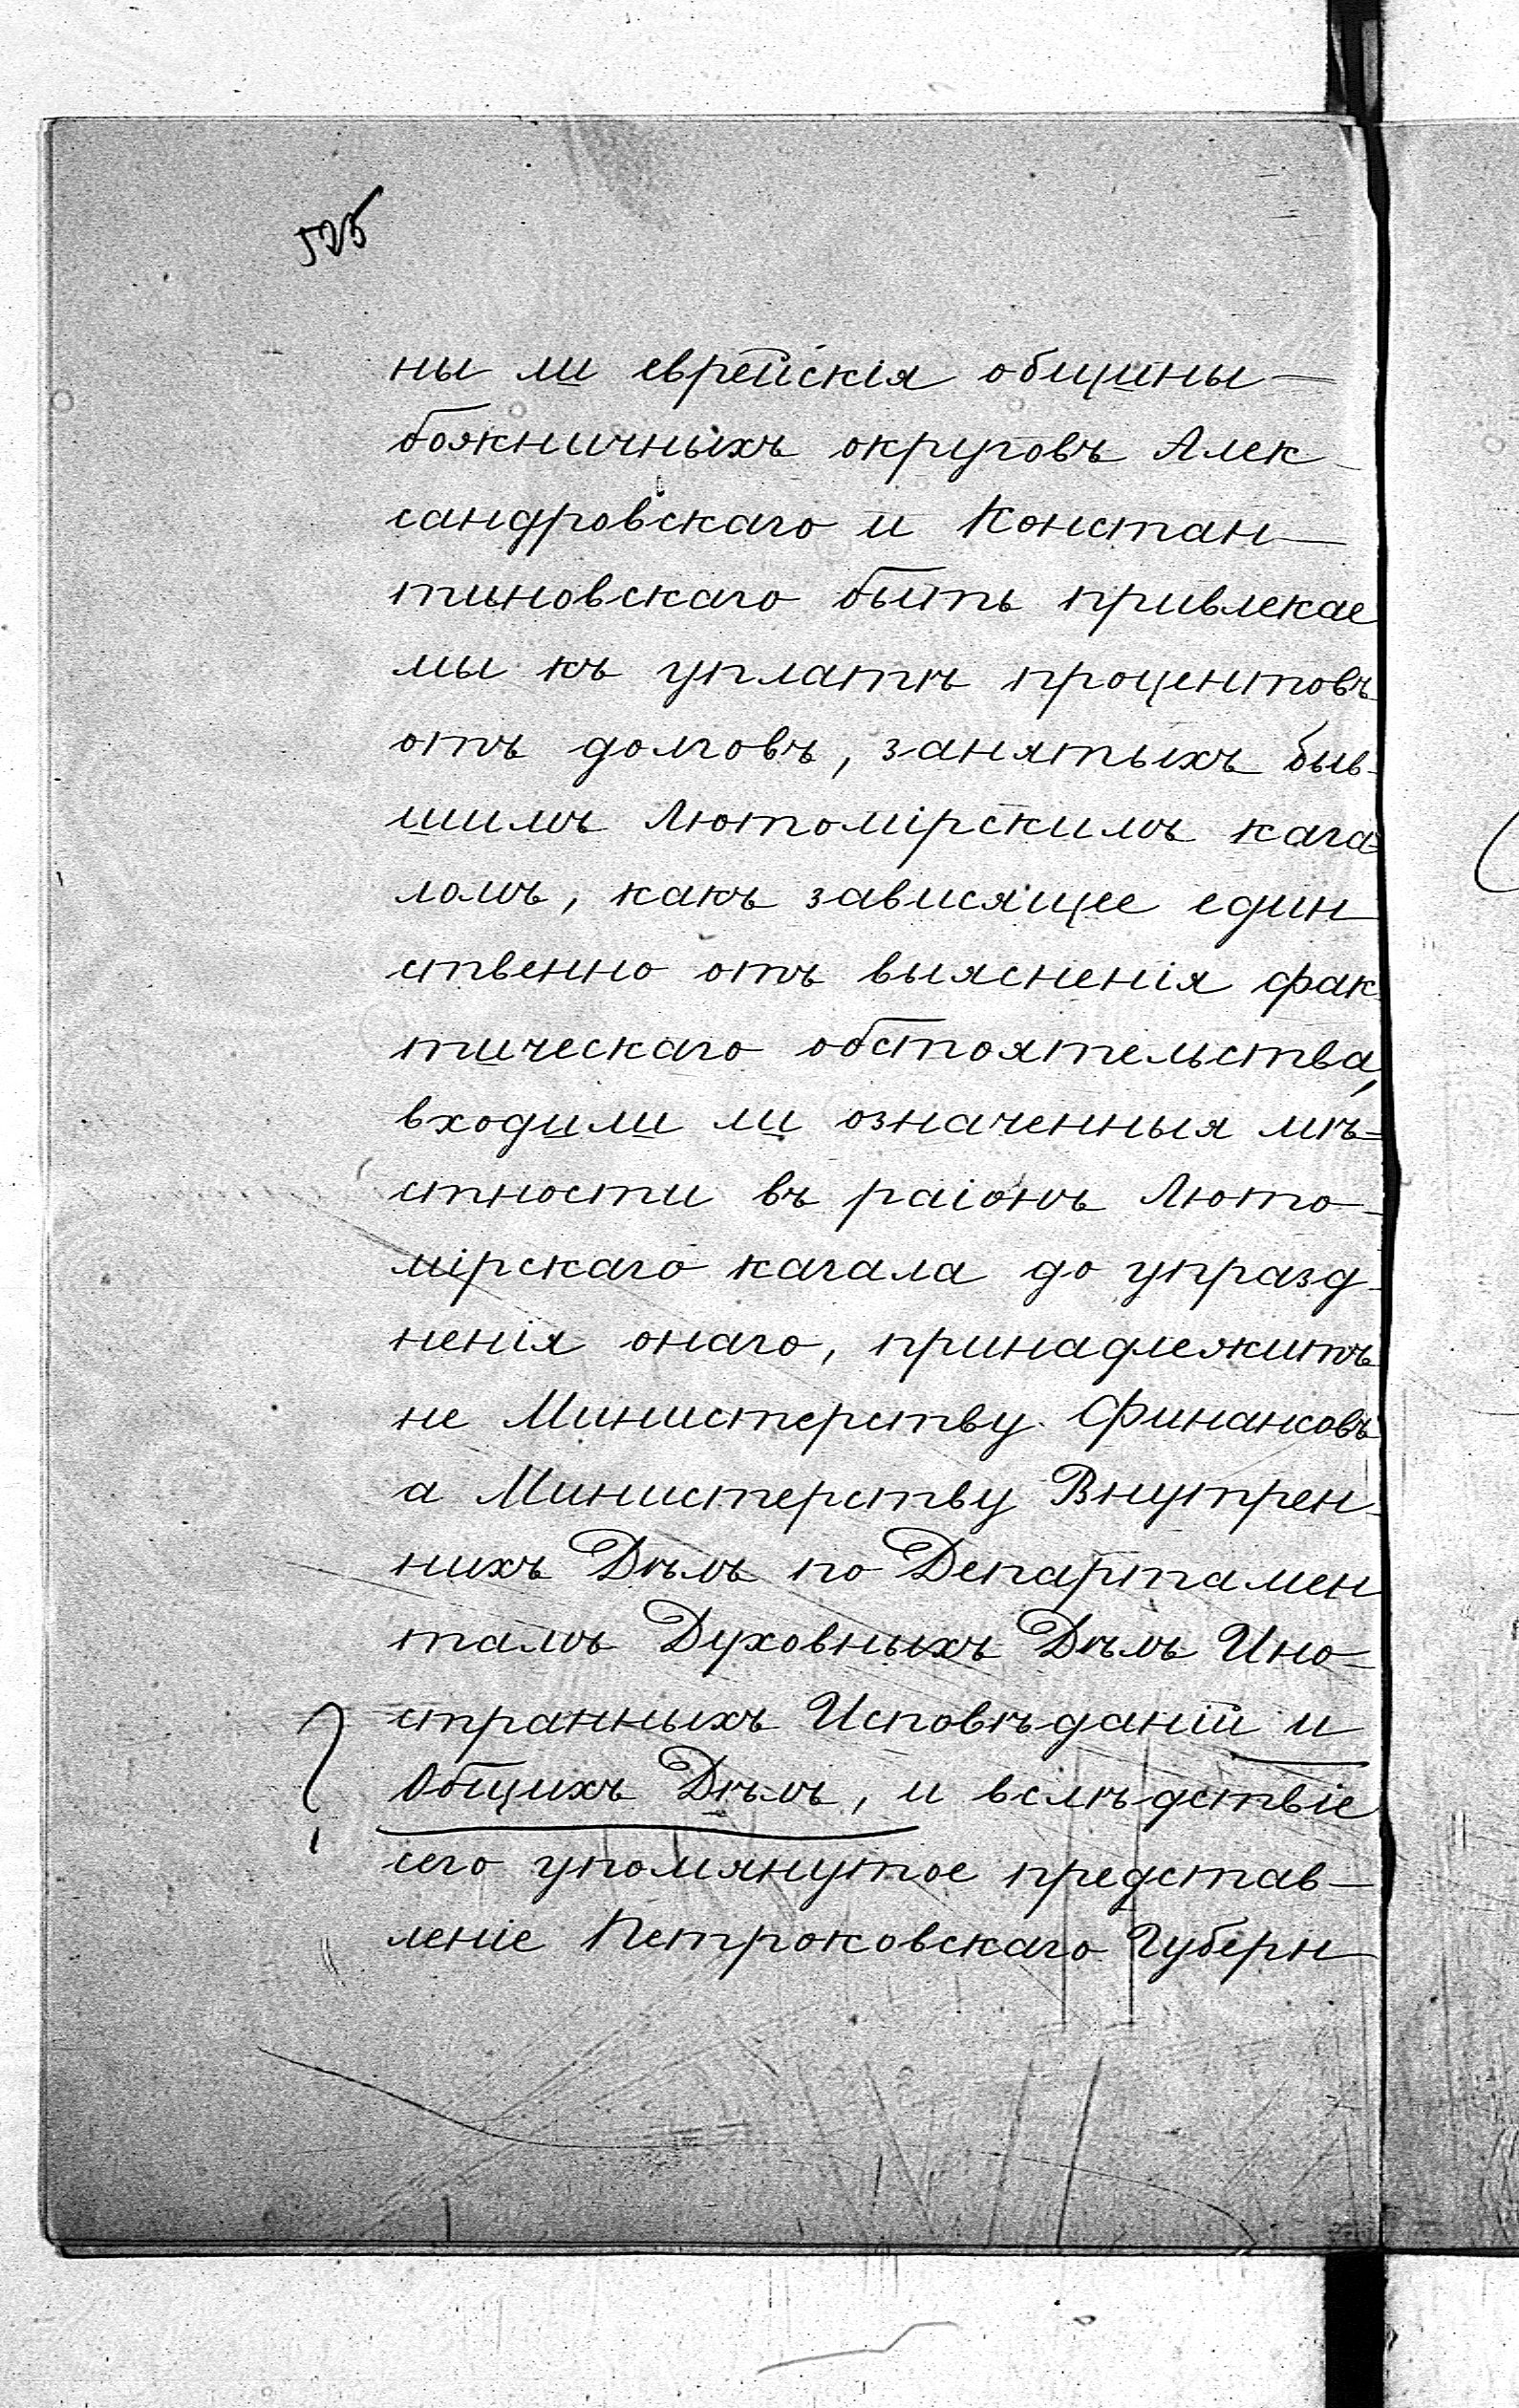 525
ны ли еврейскія общины —
божничныхъ округовъ Алек-
сандровскаго и Констан—
тиновскаго быть привлекае
мы къ уплатѣ процентовъ
отъ долговъ, занятыхъ быв-
шимъ Лютомірскимъ кага=
ломъ, какъ зависящее един
ственно отъ выясненія фак
тическаго обстоятельства,
входили ли означенныя мѣ=
стности въ раіонъ Люто-
мірскаго кагала до упразд-
ненія онаго, принадлежитъ
не Министерству Финансовъ
а Министерству Внутрен-
нихъ Дѣлъ по Департамен
тамъ Духовныхъ Дѣлъ Ино=
странныхъ Исповѣданій и
? Общихъ Дѣлъ, и вслѣдствіе
сего упомянутое представ—
леніе Петроковскаго Губерн—